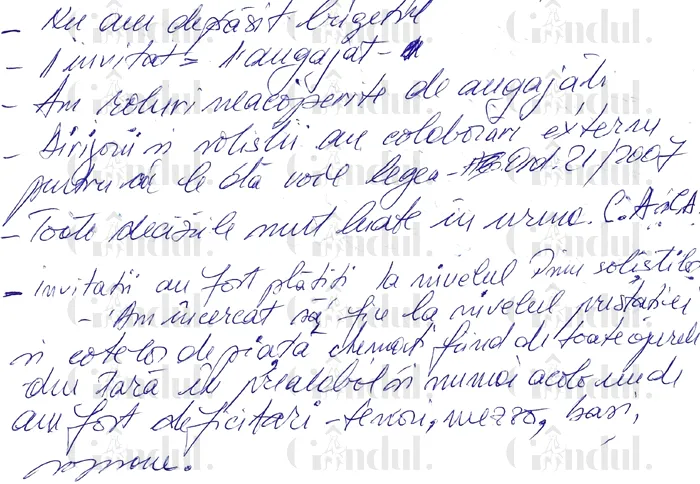 - Nu am depășit bugetul
- 1 invitat = 1 angajat -
- Am roluri neacoperite de angajați
- Dirijorii și soliștii au colaborări externe
pentru că le dă voie legea - Ord. 21/2007
- Toate deciziile sunt luate în urma C.A și C.A
- invitații au fost plătiți la nivelul prim soliștilor
- Am încercat să fie la nivelul prestației
și cotelor de piață chemați fiind de toate operele
din țară în prealabil și numai acolo unde
am fost deficitari - tenori, mezzo, bași,
soprane.
Gândul.